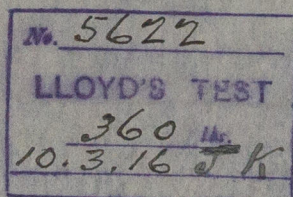 No. 5622
LLOYD'S TEST
360 lbs.
10.3.16 J K